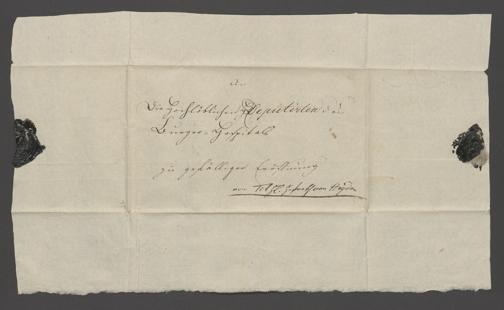 An
Die Hochlöblichen Deputirten des
Bürger-Hospitals
zu gefälliger Eröffnung
von